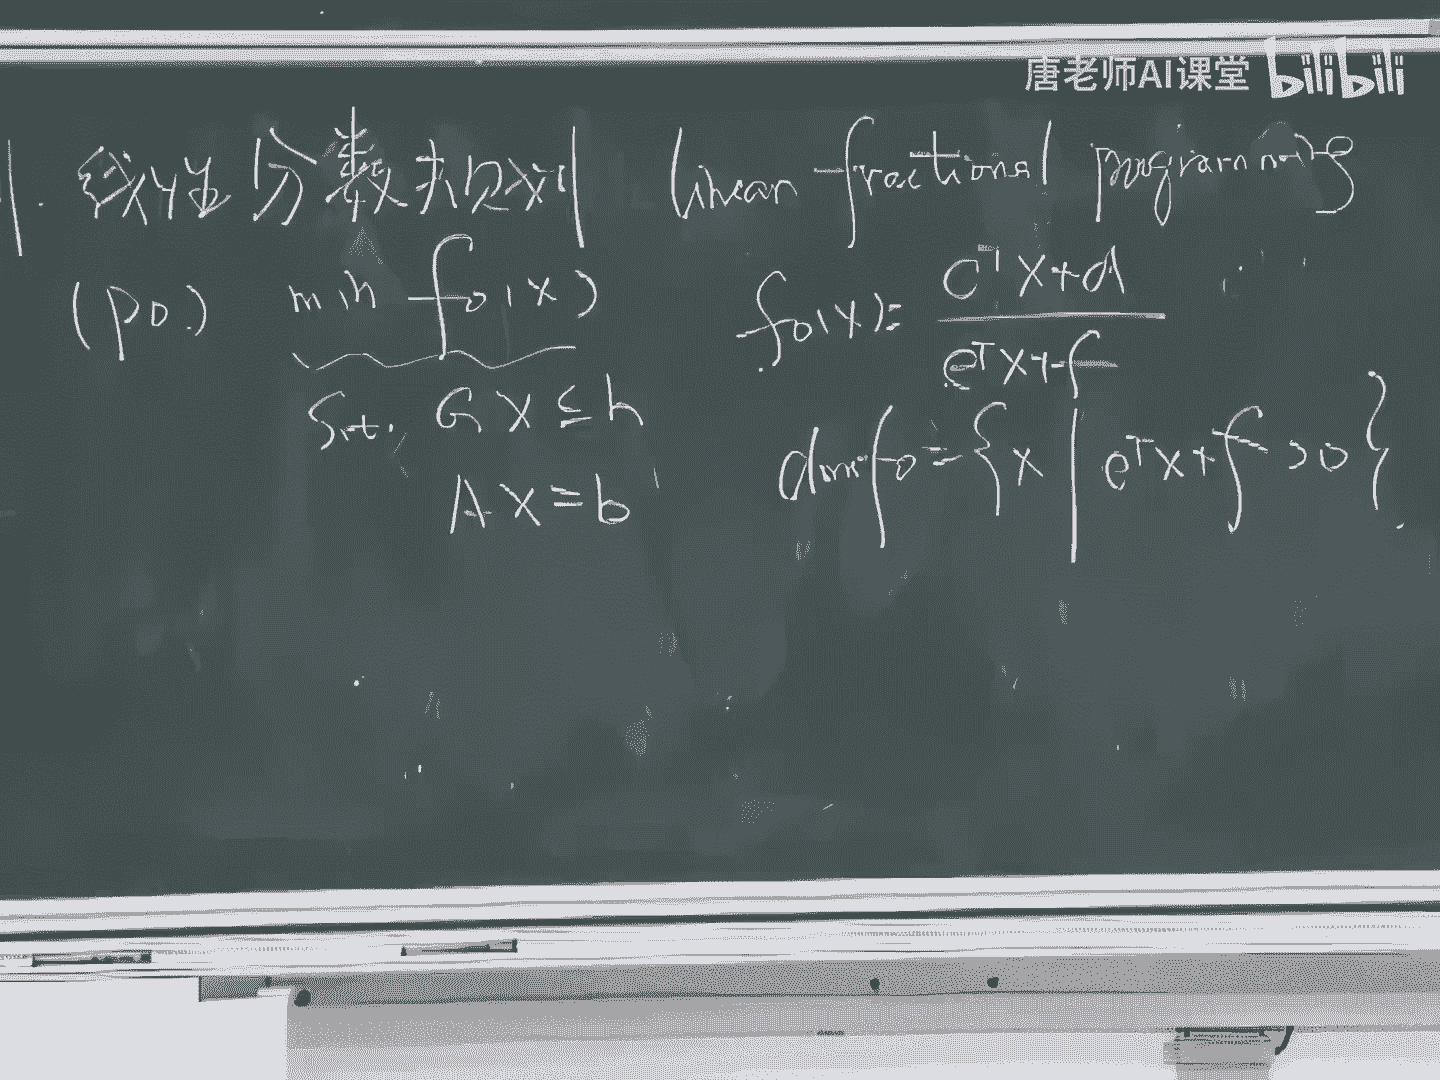 唐老师AI课堂 bilibili
1. 线性分数规划 linear-fractional programming
(P0) min f0(x) f0(x) = (c^T x + d) / (e^T x + f)
s.t. Gx ≤ h
Ax = b dom f0 = {x | e^T x + f > 0}